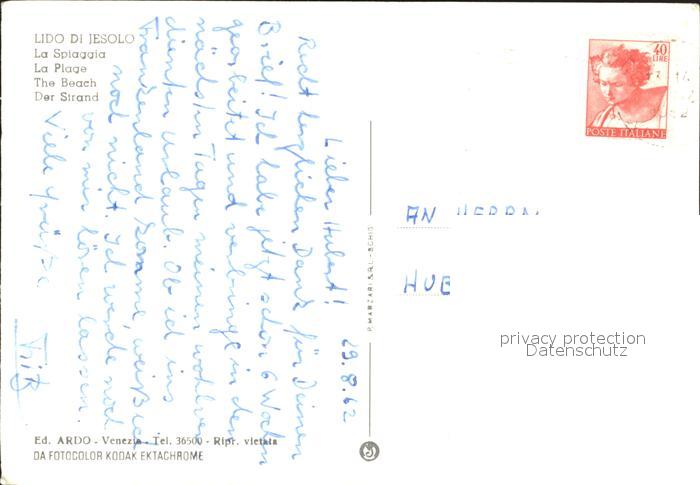 LIDO DI JESOLO
La Spiaggia
La Plage
The Beach
Der Strand
40
LIRE
POSTE ITALIANE
29.8.62
Lieber Hubert!
Recht herzlichen Dank für Deinen
Brief! Ich habe jetzt schon 6 Wochen
gearbeitet und verbringe in den
nächsten Tagen meinen wohlver
dienten Urlaub. Ob ich ins
Frankenland komme, weiß ich
noch nicht. Ich werde noch
von mir hören lassen.
Viele Grüße
Fritz
AN HERRN
HUB
P. MARZARI S.R.L. - SCHIO
privacy protection
Datenschutz
Ed. ARDO - Venezia - Tel. 36500 - Ripr. vietata
DA FOTOCOLOR KODAK EKTACHROME